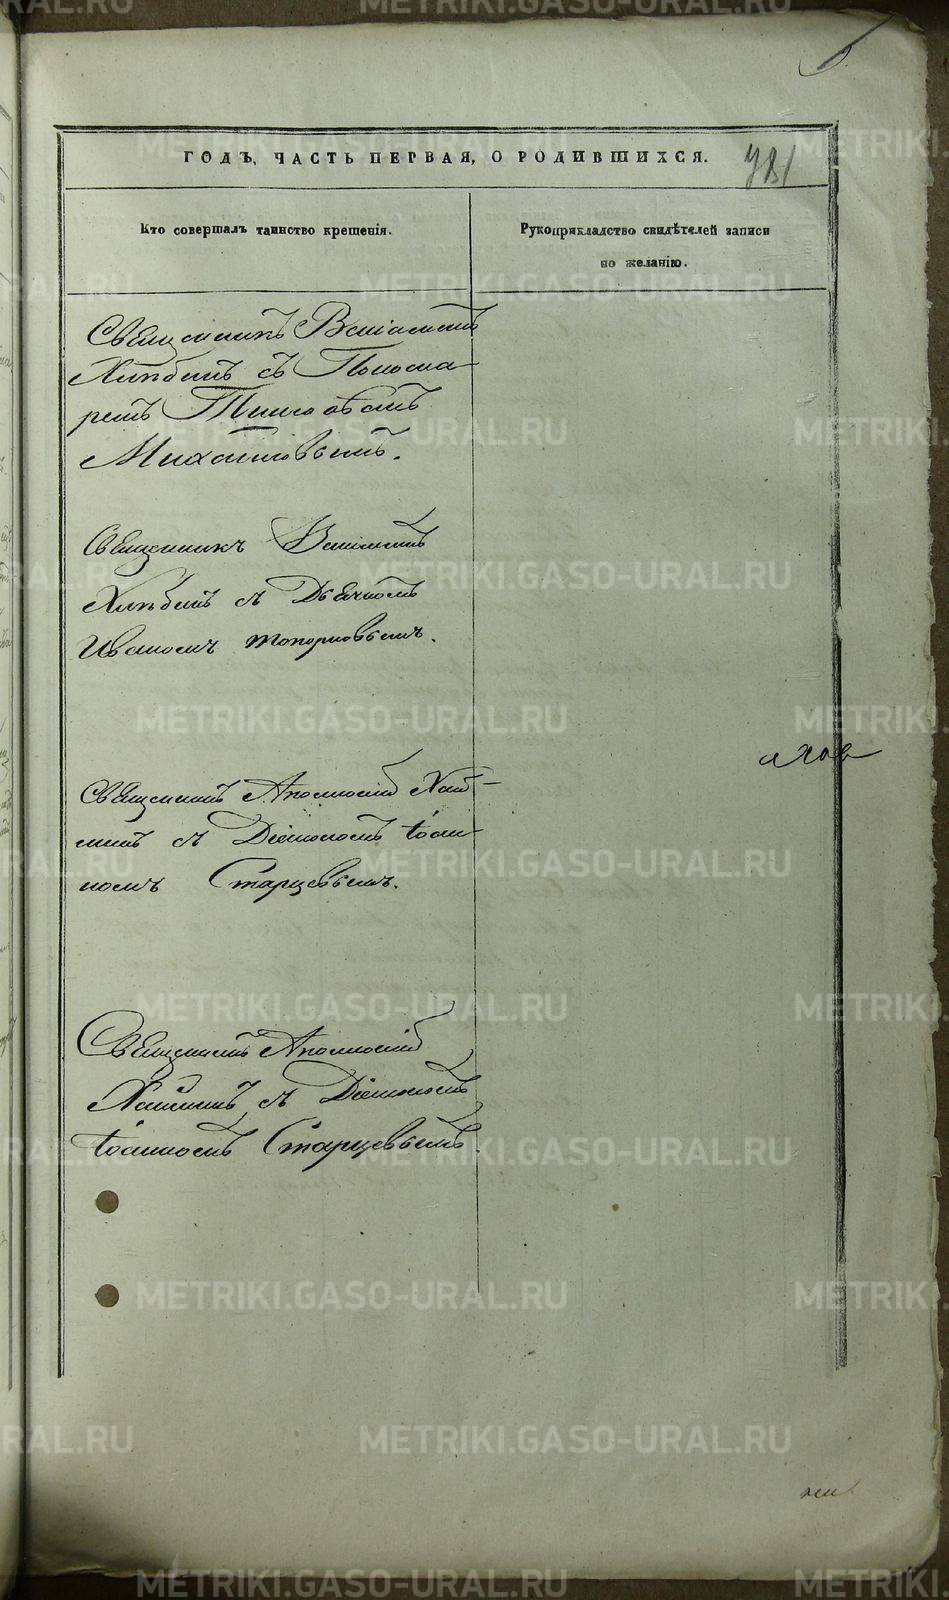 ГОДЪ, ЧАСТЬ ПЕРВАЯ, О РОДИВШИХСЯ.
781
Кто совершалъ таинство крещенія.
Рукоприкладство свидѣтелей записи
по желанію.
Священникъ Веніаминъ
Хлѣбинъ съ Понома
ремъ
Михайловымъ.
Священникъ Веніаминъ
Хлѣбинъ съ Дьячкомъ
Иваномъ Топорковымъ.
Священникъ Аполлосій
съ Діакономъ Іоан
номъ Старцевымъ.
Священникъ Аполлосій
съ Діакономъ
Іоанномъ Старцевымъ.
METRIKI.GASO-URAL.RU